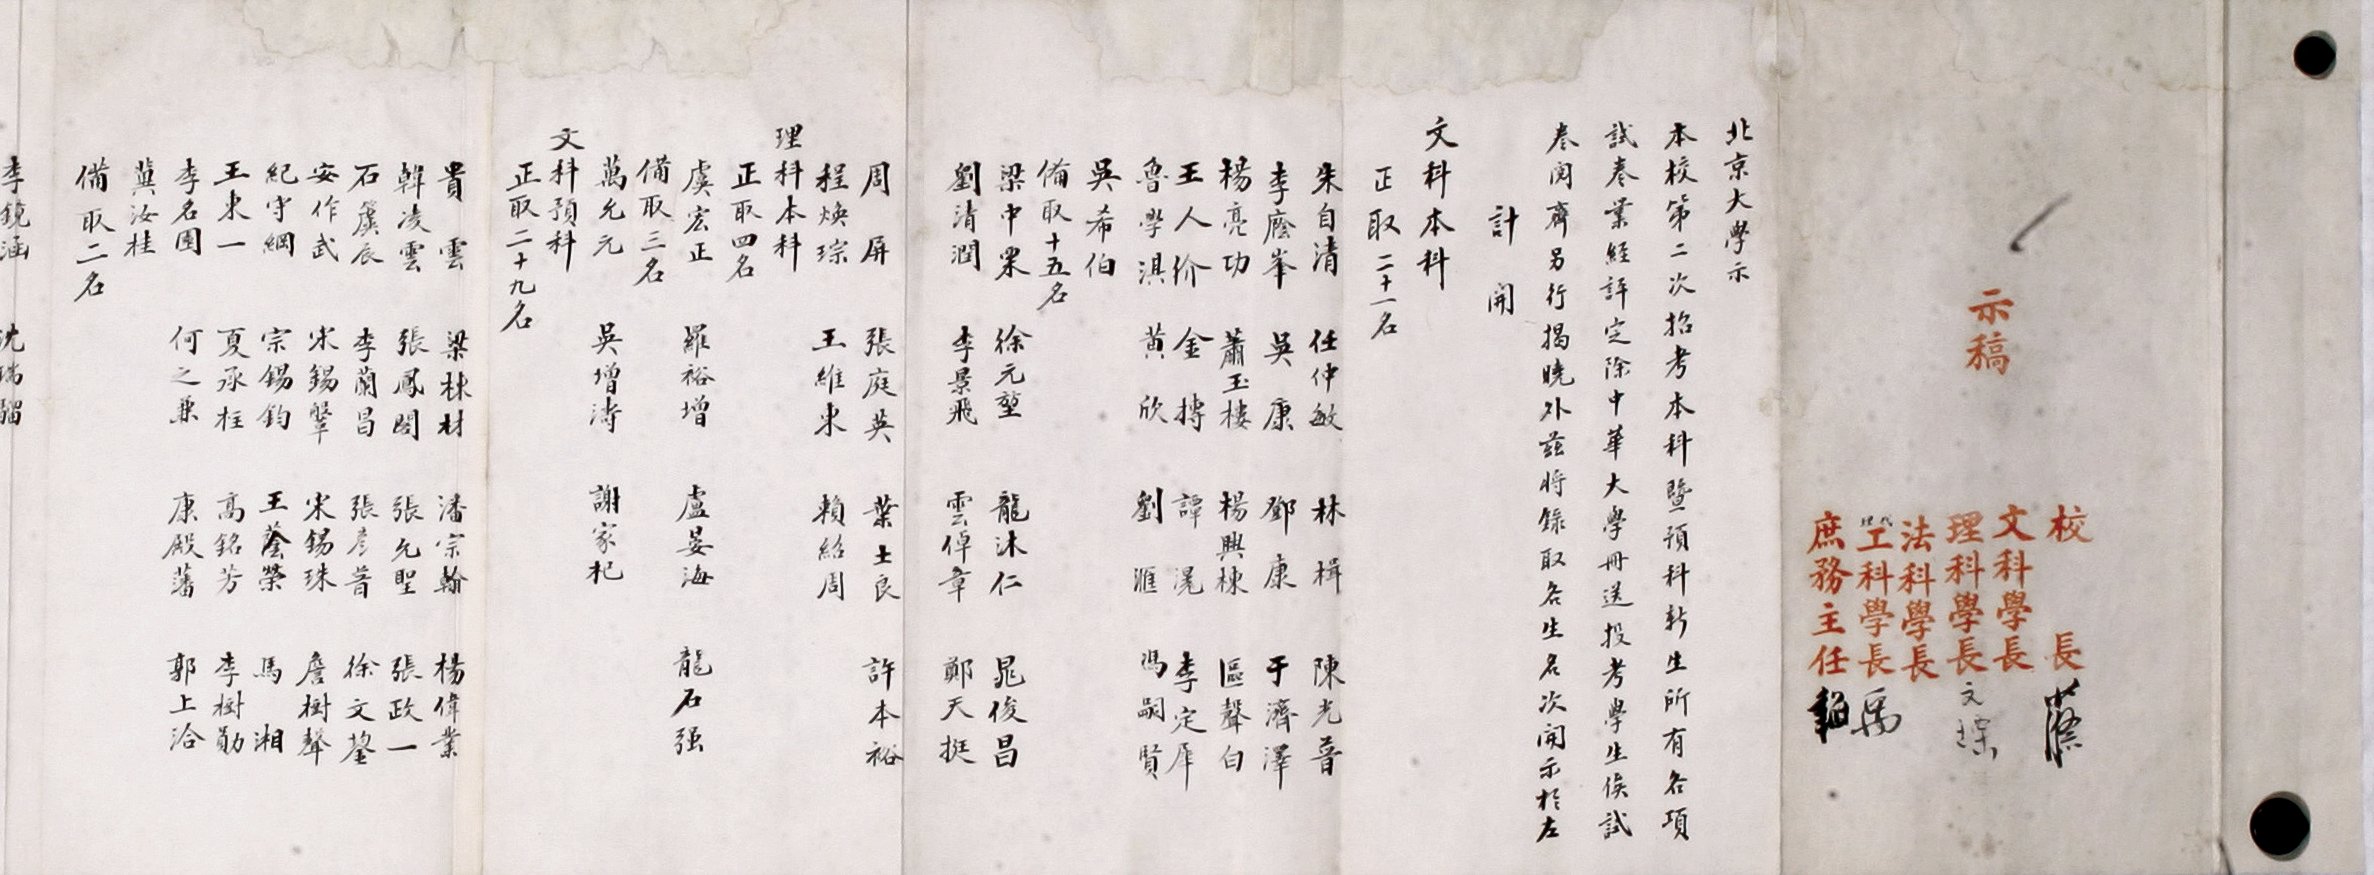 示稿
校長 蔡
文科學長
理科學長
法科學長
工科學長
庶務主任
北京大學示
本校第二次招考本科暨預科新生所有各項
試卷業經評定除中華大學冊送投考學生俟試
卷閱齊另行揭曉外茲將錄取各生名次開示於左
計開
文科本科
正取二十一名
朱自清 任仲敏 林楫 陳光普
李廕峯 吳康 鄧康 于濟澤
楊亮功 蕭玉樓 楊興棟 區聲白
王人价 金摶 譚滉 李定
魯學淇 黃欣 劉滙 馮嗣賢
吳希伯
備取十五名
梁中杲 徐元堃 龍沐仁 晁俊昌
劉清潤 李景飛 雲倬章 鄭天挺
周屏 張庭英 葉士良 許本裕
程煥琮 王維東 賴紹周
理科本科
正取四名
虞宏正 羅裕增 盧晏海 龍石强
備取三名
萬允元 吳增濤 謝家杞
文科預科
正取二十九名
貴雲 梁棟材 潘宗翰 楊偉業
韓凌雲 張鳳閣 張允聖 張政一
石廙辰 李蘭昌 張彥普 徐文
安作武 宋錫 宋錫珠 詹樹聲
紀守綱 宗錫鈞 王蔭榮 馬湘
王東一 夏承柱 高銘芳 李樹勛
李名園 何之兼 康殿藩 郭上洽
冀汝桂
備取二名
李鏡涵 沈瑞